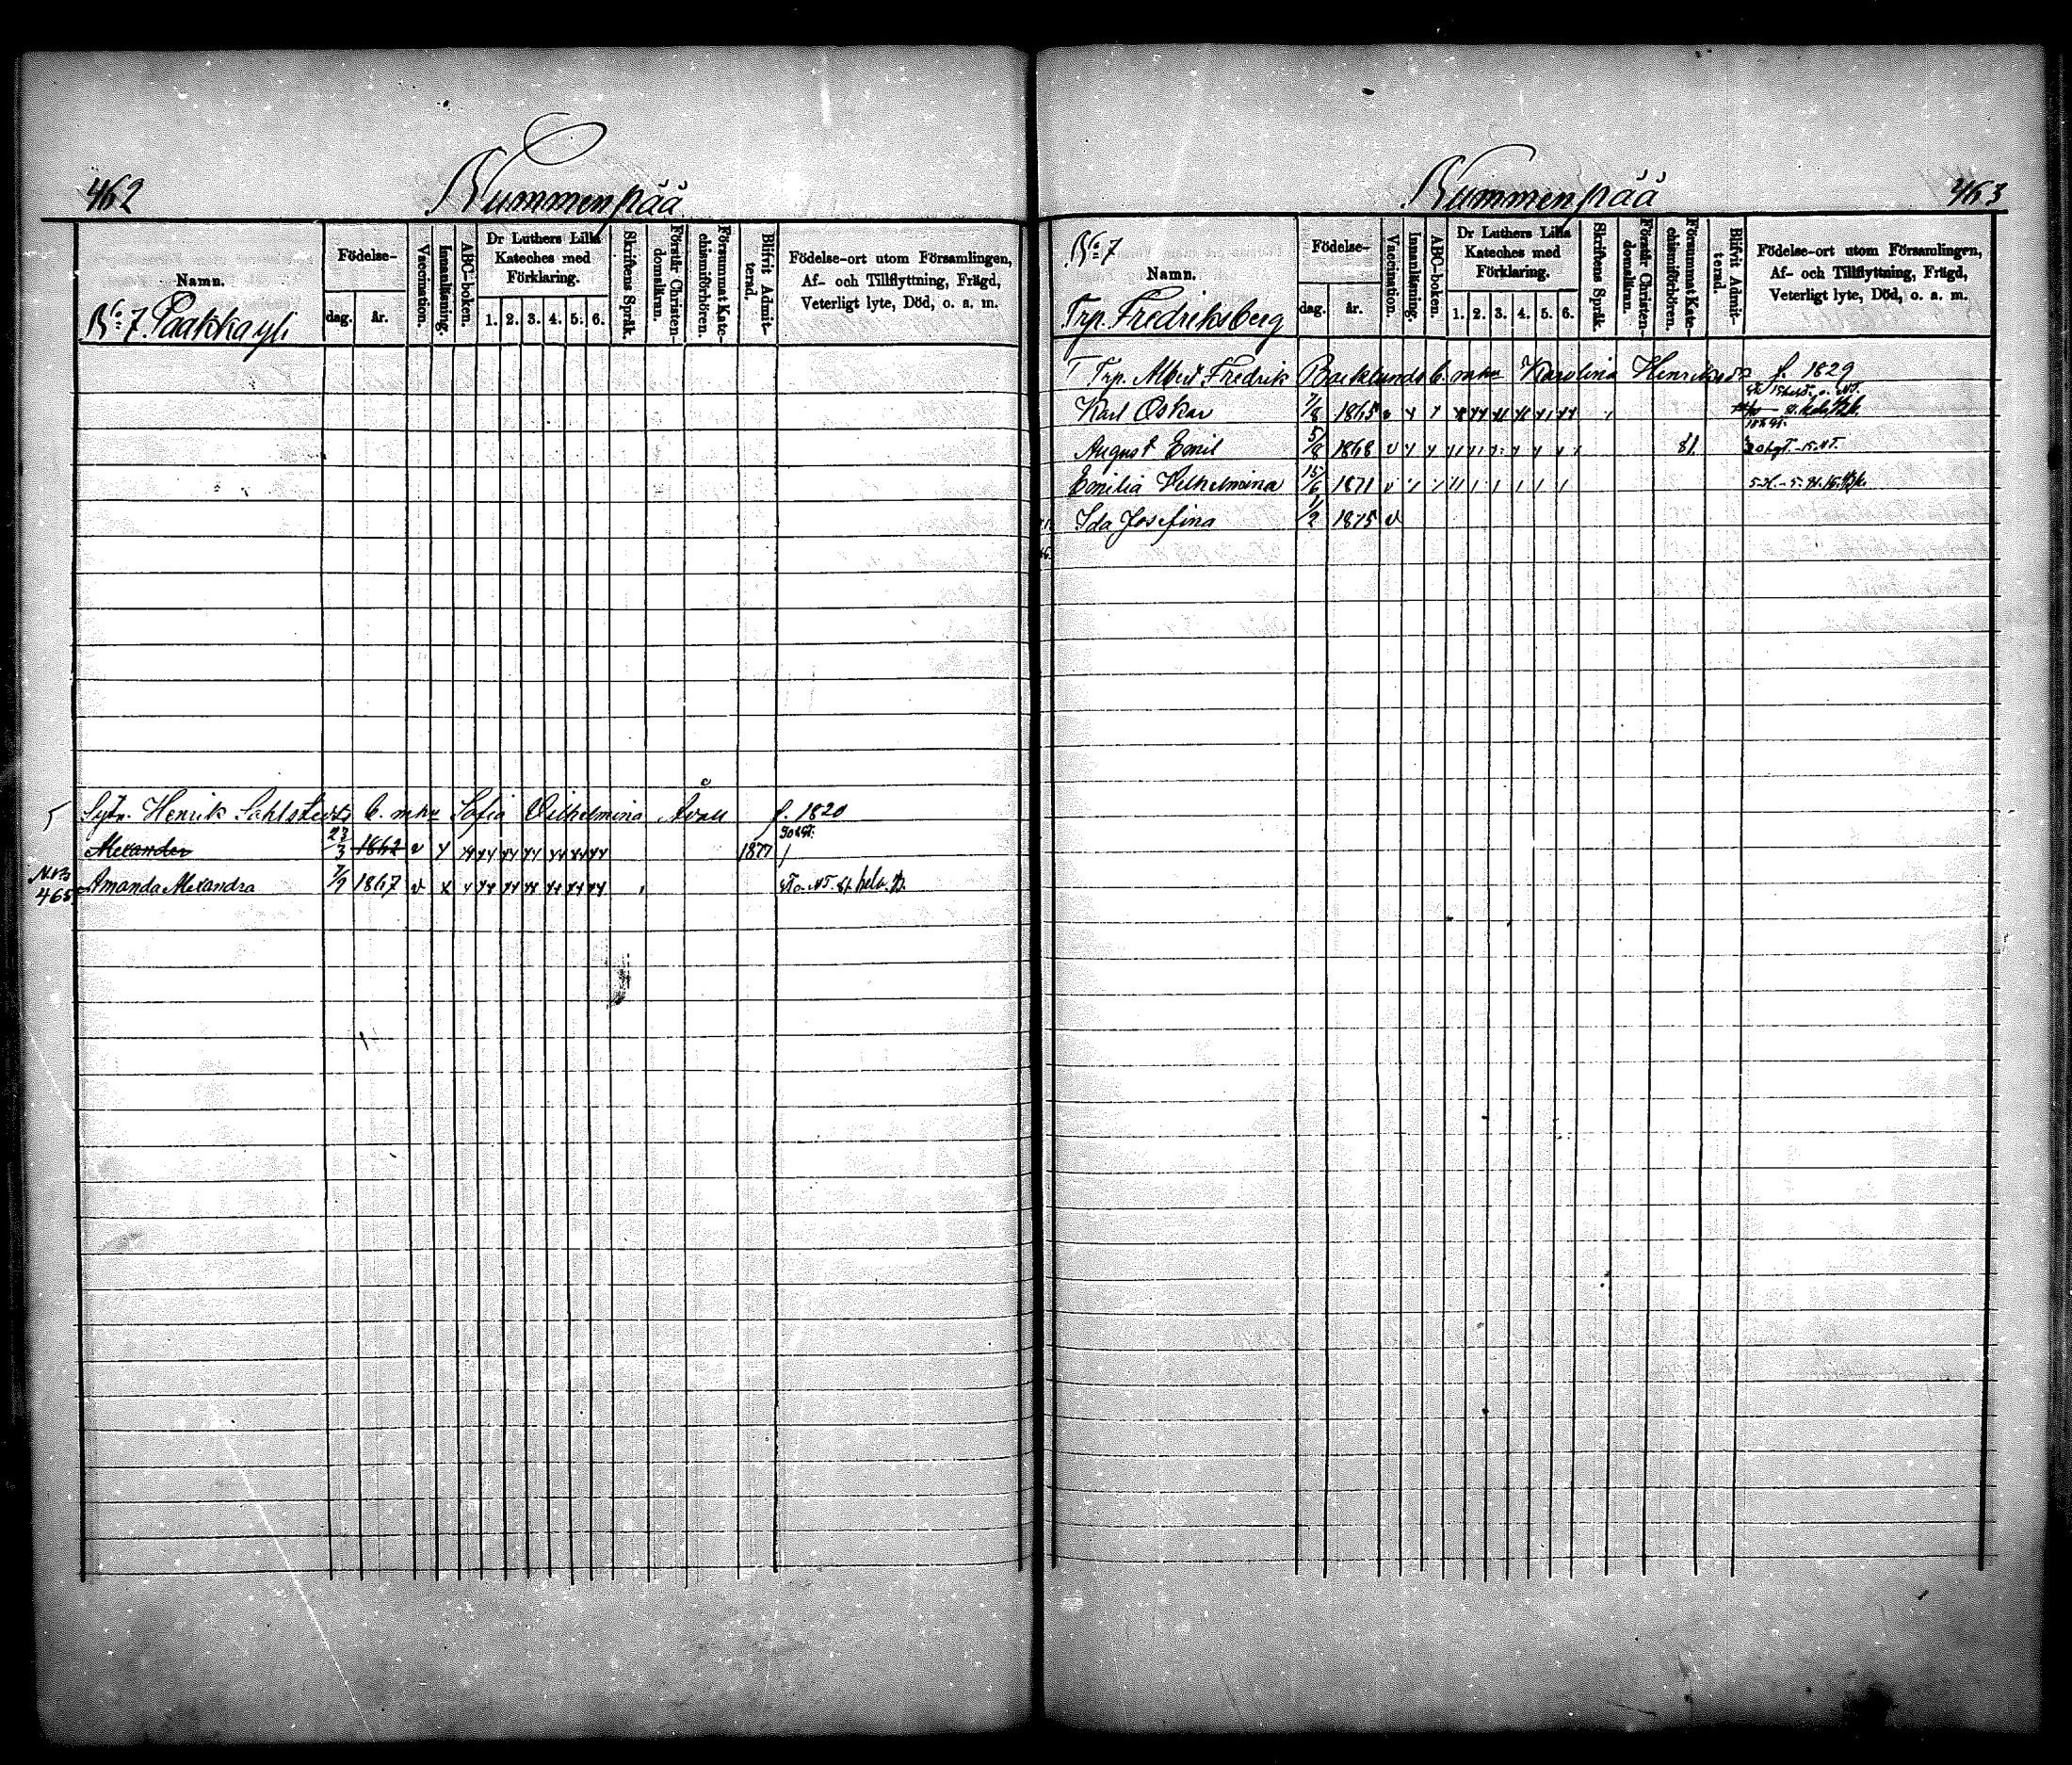 462
Nummenpää
Namn.
Födelse-
dag.
år.
Vaccination.
Innanläsning.
ABC-boken.
Dr Luthers Lilla
Kateches med
Förklaring.
1. 2. 3. 4. 5. 6.
Skriftens Språk.
Förstår Christen-
domsläran.
Försummat Kate-
chismiförhören.
Blifvit Admit-
terad.
Födelse-ort utom Församlingen,
Af- och Tillflyttning, Frägd,
Veterligt lyte, Död, o. a. m.
No 7. Paakkayli
Henrik Sahlstedts b. m. hu Sofia Vilhelmina f. 1820
Alexander 23/3 1862 v 1877
N.B.
465
Amanda Alexandra 7/9 1867 v
Nummenpää
463
No 7
Namn.
Födelse-
dag.
år.
Vaccination.
Innanläsning.
ABC-boken.
Dr Luthers Lilla
Kateches med
Förklaring.
1. 2. 3. 4. 5. 6.
Skriftens Språk.
Förstår Christen-
domsläran.
Försummat Kate-
chismiförhören.
Blifvit Admit-
terad.
Födelse-ort utom Församlingen,
Af- och Tillflyttning, Frägd,
Veterligt lyte, Död, o. a. m.
Trp. Fredriksberg
Trp. Albert Fredrik Backlunds b. m. hu Karolina f. 1829
Karl Oskar 7/8 1865 v
August Emil 5/8 1868 v 81.
Emilia Vilhelmina 15/6 1871 v
Ida Josefina 1/2 1875 v